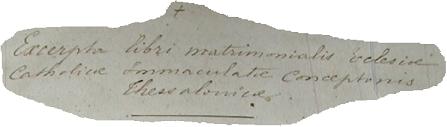 Excerpta libri matrimonialis Ecclesiæ
Catholicæ Immaculatæ Conceptonis
Thessalonicæ